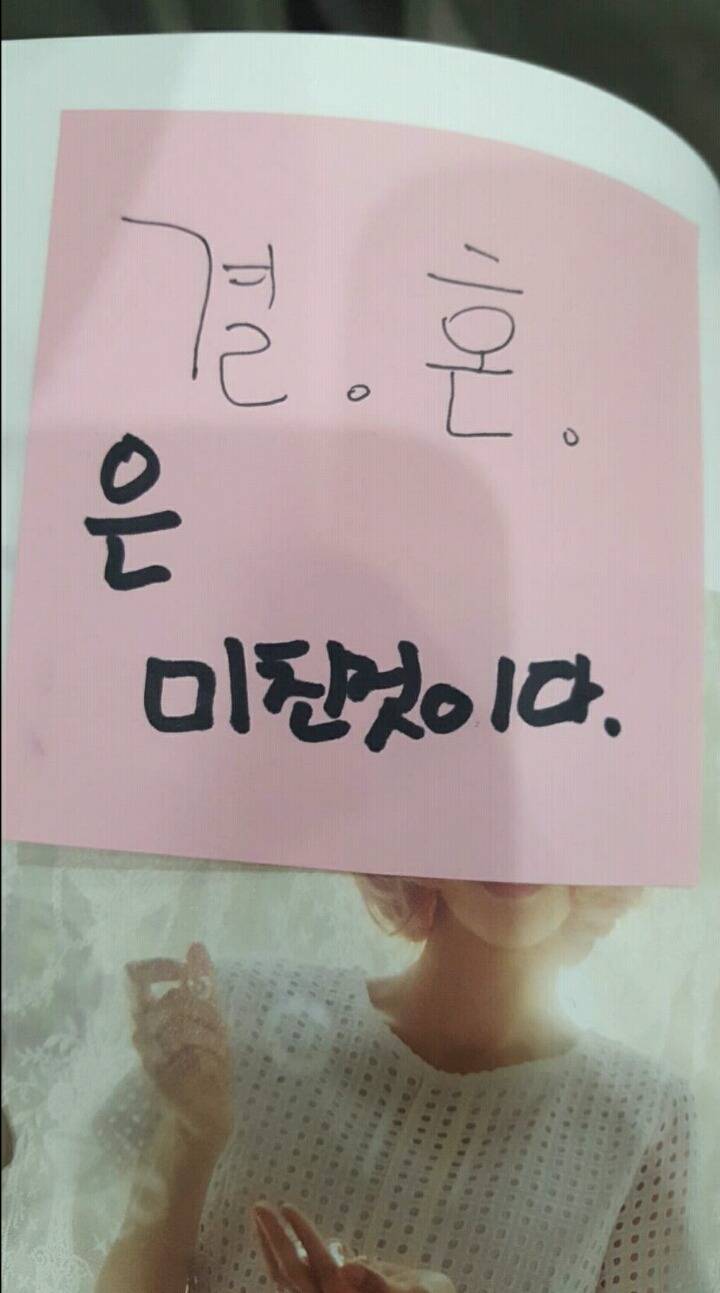 결.혼.
은
미친멋이다.